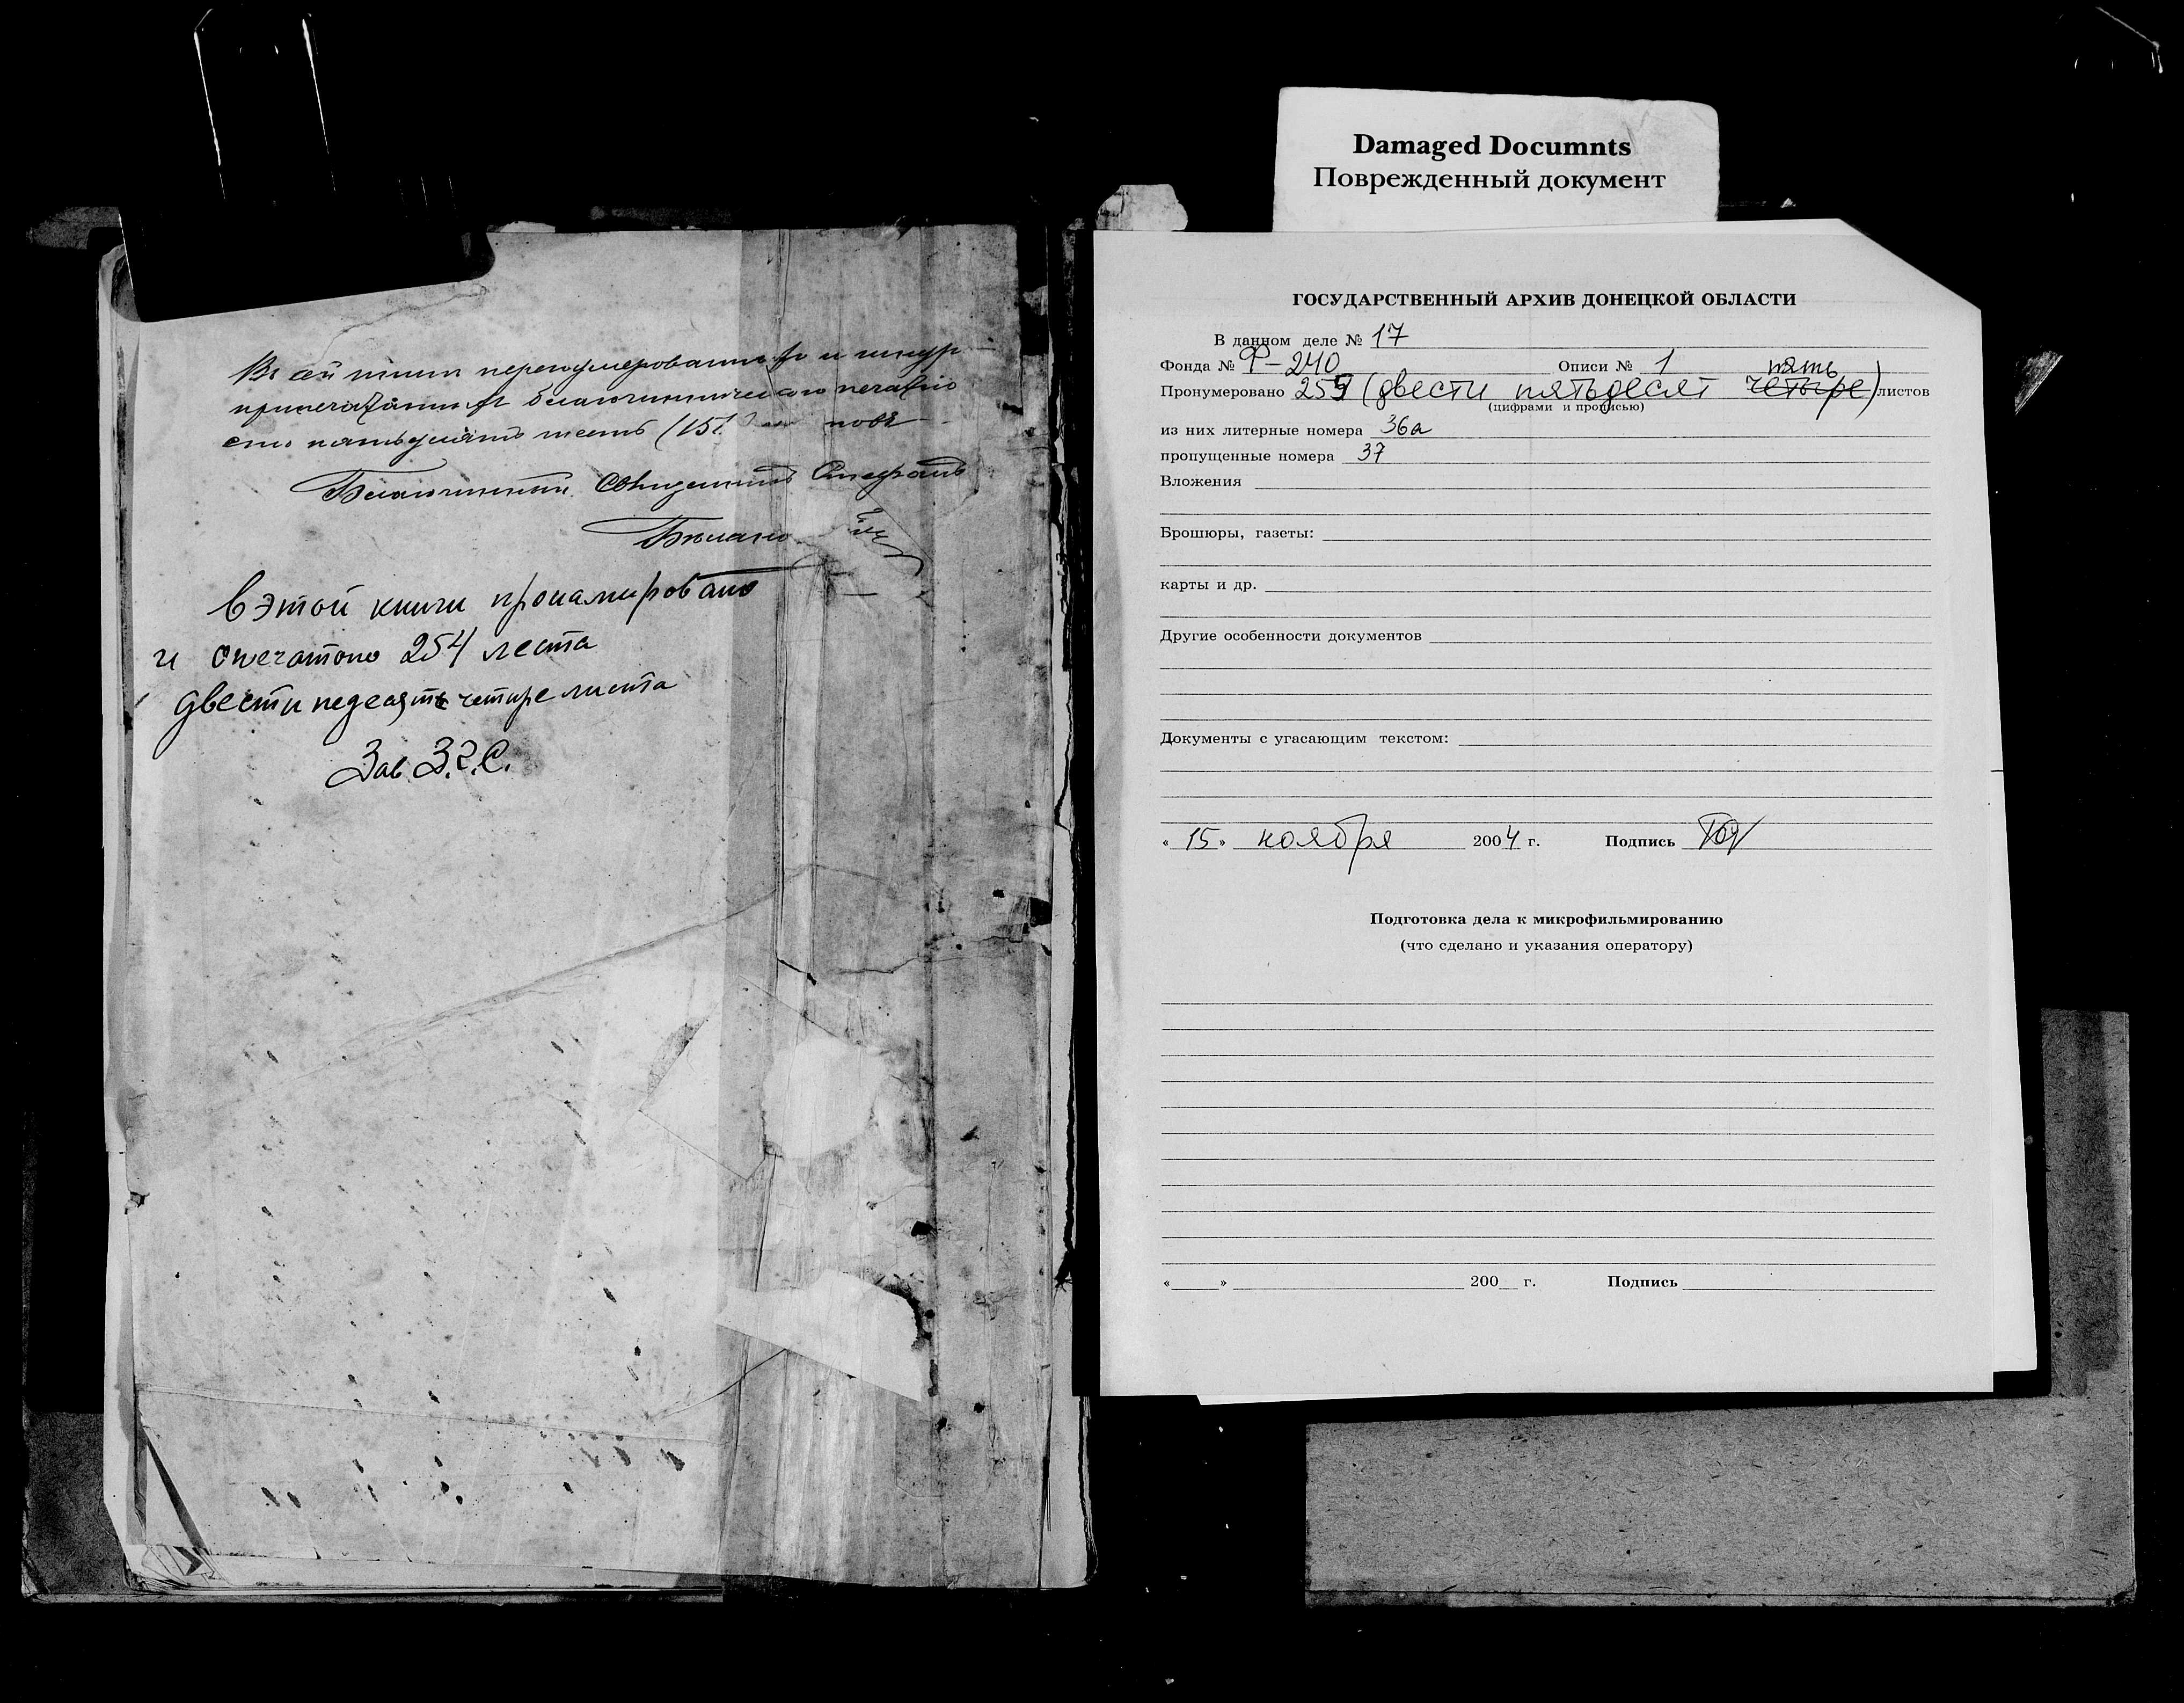 Въ сей книги перенумерованныхъ и шнур
припечатанныхъ благочинническою печатію
сто пятьдесятъ шесть (15
Благочинный Священникъ Стефанъ
в этой книги пронамировано
и опечатоно 254 леста
двести педесять четире листа
Зав. З.Г.С.
Damaged Documnts
Поврежденный документ
ГОСУДАРСТВЕННЫЙ АРХИВ ДОНЕЦКОЙ ОБЛАСТИ
В данном деле № 17
Фонда № Ф-240 Описи № 1 пять
Пронумеровано 255 (двести пятьдесят четыре) листов
(цифрами и прописью)
из них литерные номера 36а
пропущенные номера 37
Вложения
Брошюры, газеты:
карты и др.
Другие особенности документов
Документы с угасающим текстом:
« 15 » ноября 2004 г. Подпись
Подготовка дела к микрофильмированию
(что сделано и указания оператору)
« » 200 г. Подпись